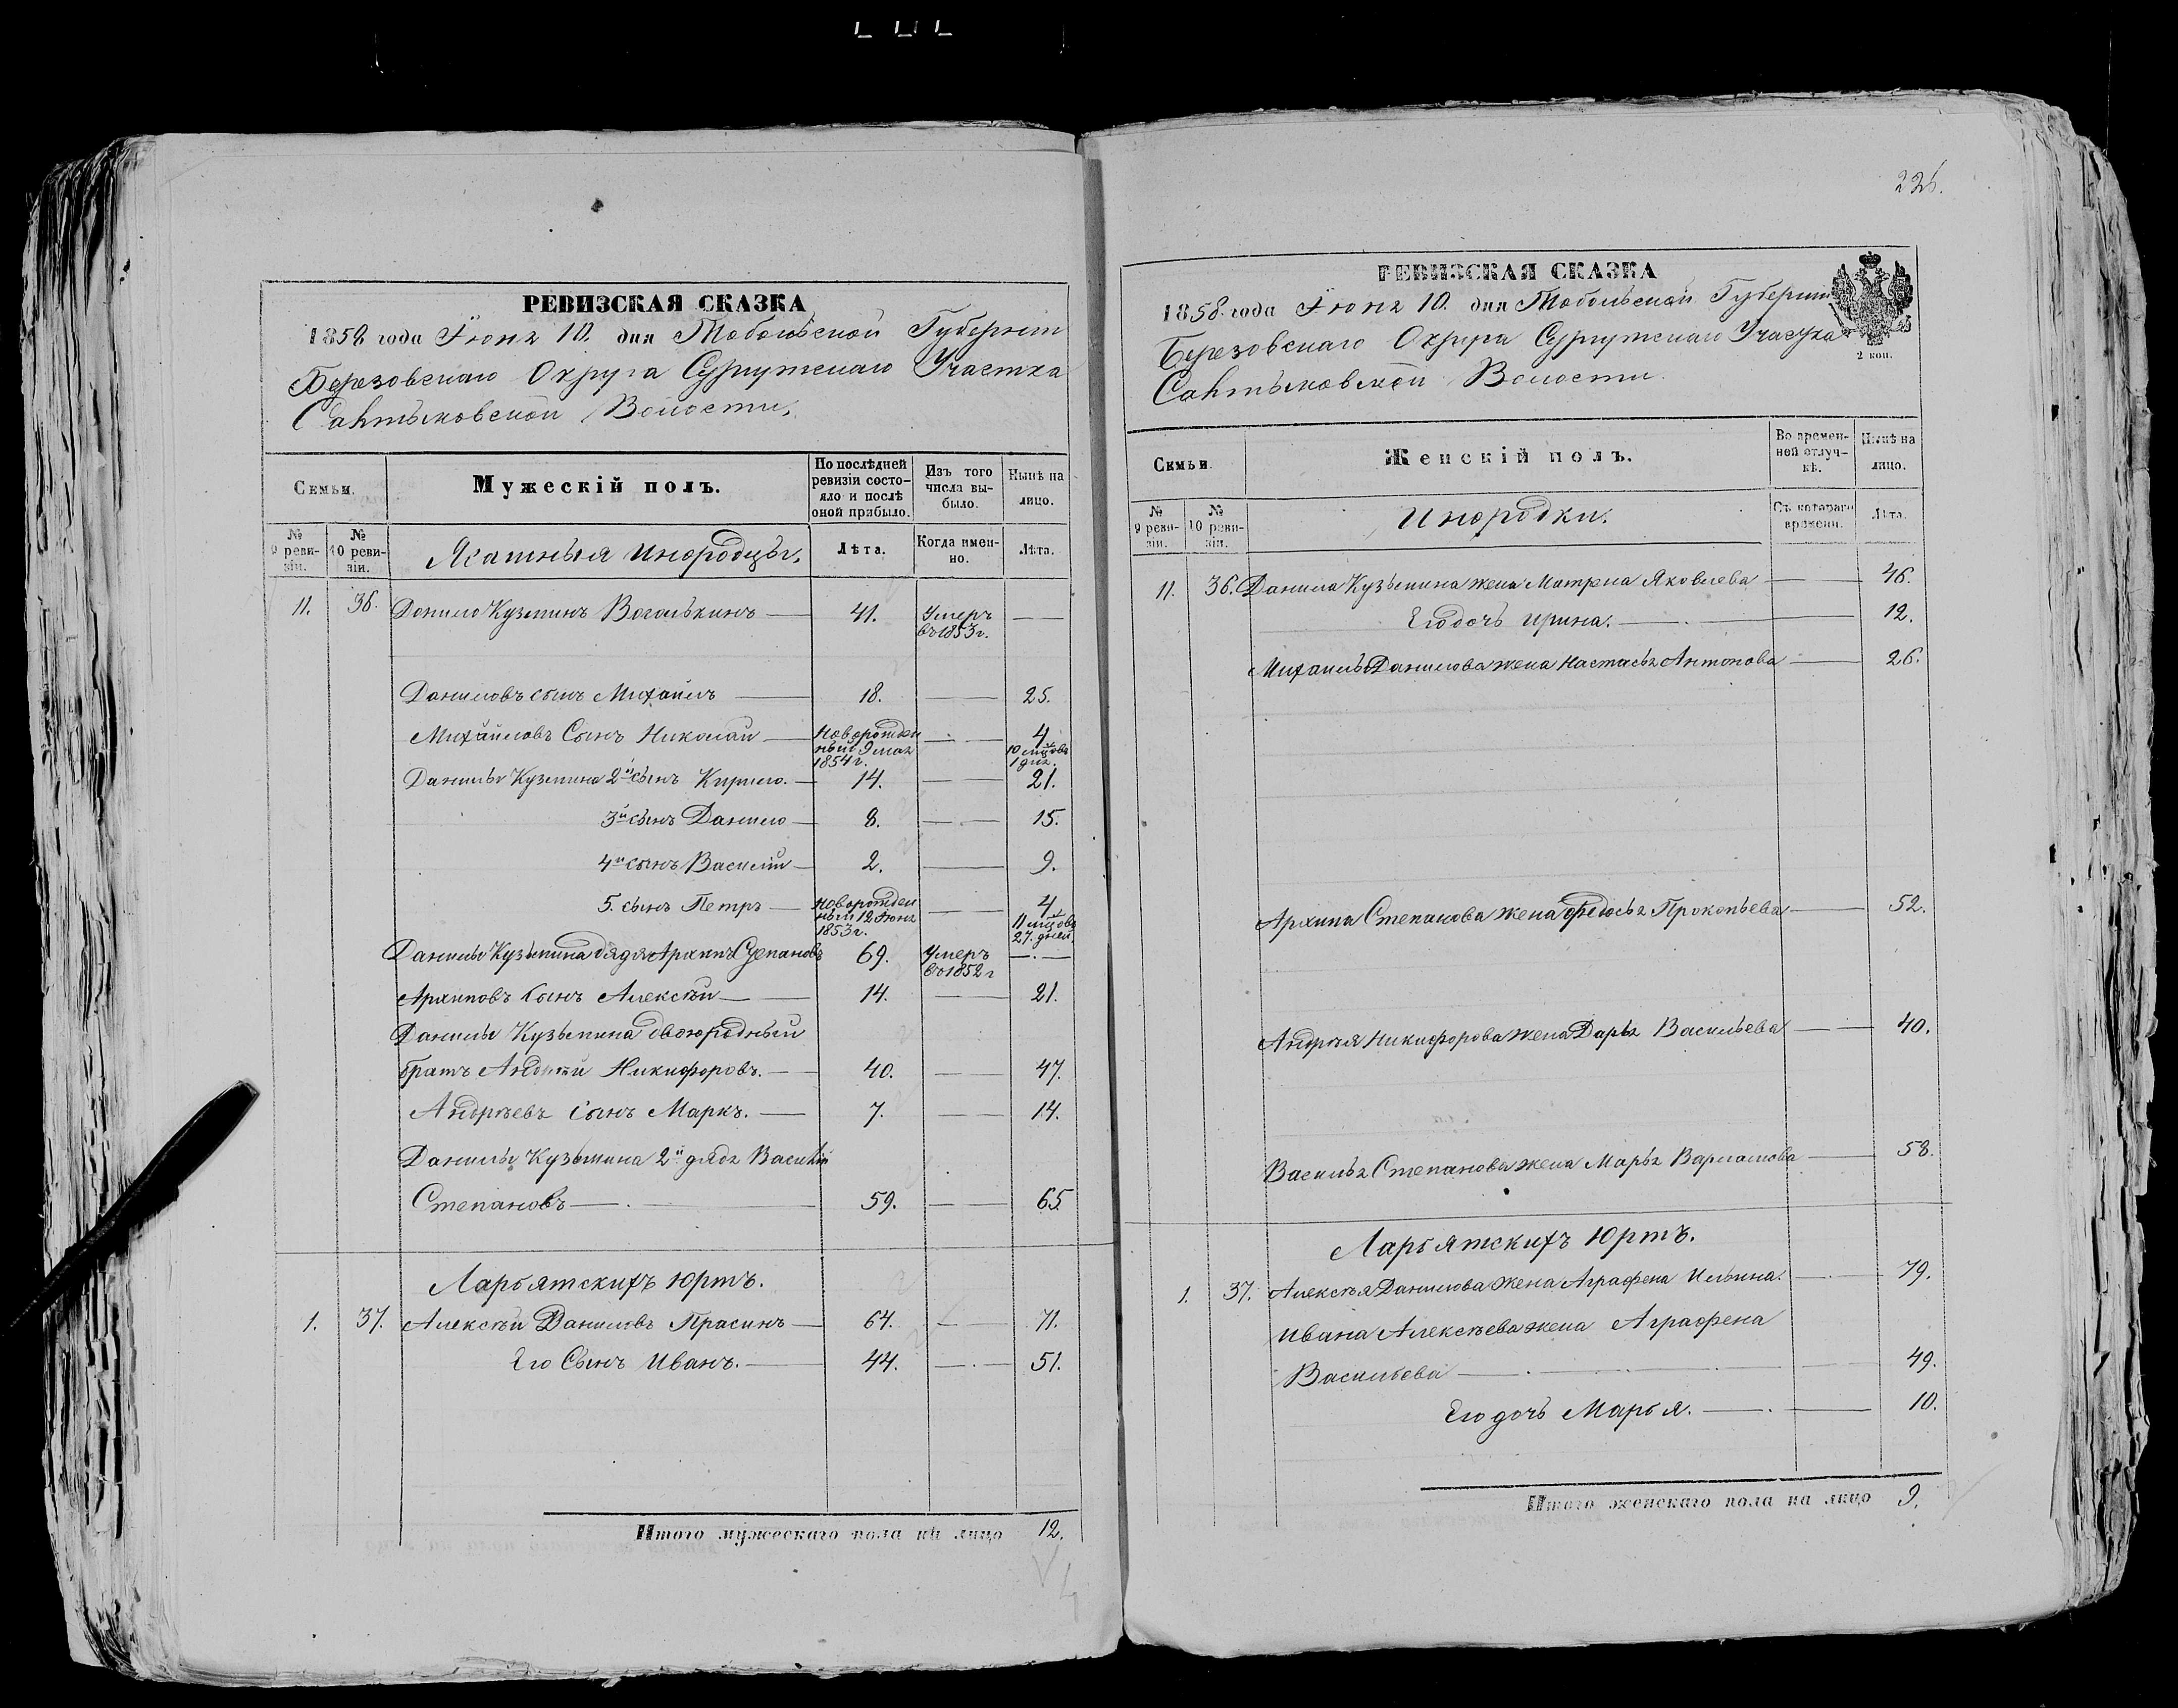 РЕВИЗСКАЯ СКАЗКА
1858 года Іюня 10. дня Тобольской Губерніи
Березовскаго Округа Сургутскаго Участка
Салтыковской Волости,
Семьи.
Мужескій полъ.
По послѣдней ревизіи состояло и послѣ оной прибыло.
Изъ того числа выбыло.
Нынѣ на лицо.
№ 9 ревизіи.
№ 10 ревизіи.
Ясашныя инородцы,
Лѣта.
Когда именно.
Лѣта.
11. 36. Данило Кузминъ Вогалькинъ 41. Умеръ въ 1853 г.
Даниловъ сынъ Михаилъ 18. 25.
Михайловъ Сынъ Николай Новорожденный 9 мая 1854 г. 4 10 мцовъ 1 дня.
Данилы Кузмина 2й сынъ Кирило. 14. 21.
3й сынъ Данило 8. 15.
4й сынъ Василій 2. 9.
5. сынъ Петръ новорожденный 12 Іюня 1853 г. 4 11 мцовъ 27. дней.
Данилы Кузьмина дядя Архипъ Степановъ 69. Умеръ въ 1852 г
Архиповъ сынъ Алексѣй 14. 21.
Данилы Кузьмина двоюродный
братъ Андрей Никифоровъ. 40. 47.
Андреевъ сынъ Маркъ. 7. 14.
Данилы Кузьмина 2й дядя Василій
Степановъ 59. 65
Ларьятскихъ юртъ.
1. 37. Алексѣй Даниловъ Прасинъ 64. 71.
Его Сынъ Иванъ. 44. 51.
Итого мужескаго пола на лицо 12.
226.
РЕВИЗСКАЯ СКАЗКА
1858 года Іюня 10. дня Тобольской Губерніи
Березовскаго Округа Сургутскаго Участка
Салтыковской Волости.
2 коп.
Семьи.
Женскій полъ.
Во временной отлучкѣ.
Нынѣ на лицо.
№ 9 ревизіи.
№ 10 ревизіи.
Инородки.
Съ котораго времени.
Лѣта.
11. 36. Данила Кузьмина жена Матрена Яковлева 46.
Его дочь Ирина. 12.
Михаилы Данилова жена Настасья Антонова 26.
Архипа Степанова жена Федосья Прокопьева 52.
Андрея Никифорова жена Дарья Васильева 40.
Василья Степанова жена Марья Варламова 58.
Ларьятскихъ Юртъ.
1. 37. Алексѣя Данилова жена Аграфена Ильина. 79.
Ивана Алексѣева жена Аграфена
Васильева 49.
Его дочь Марья. 10.
Итого женскаго пола на лицо 9.